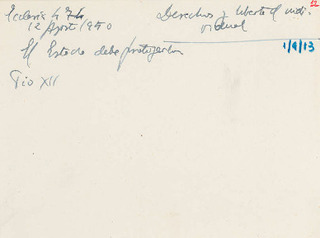 Ecclesia 474
12 Agost. 1950
Derechos y libertad indi-
vidual
12
1/9/13
El Estado debe protegerlos
Pío XII